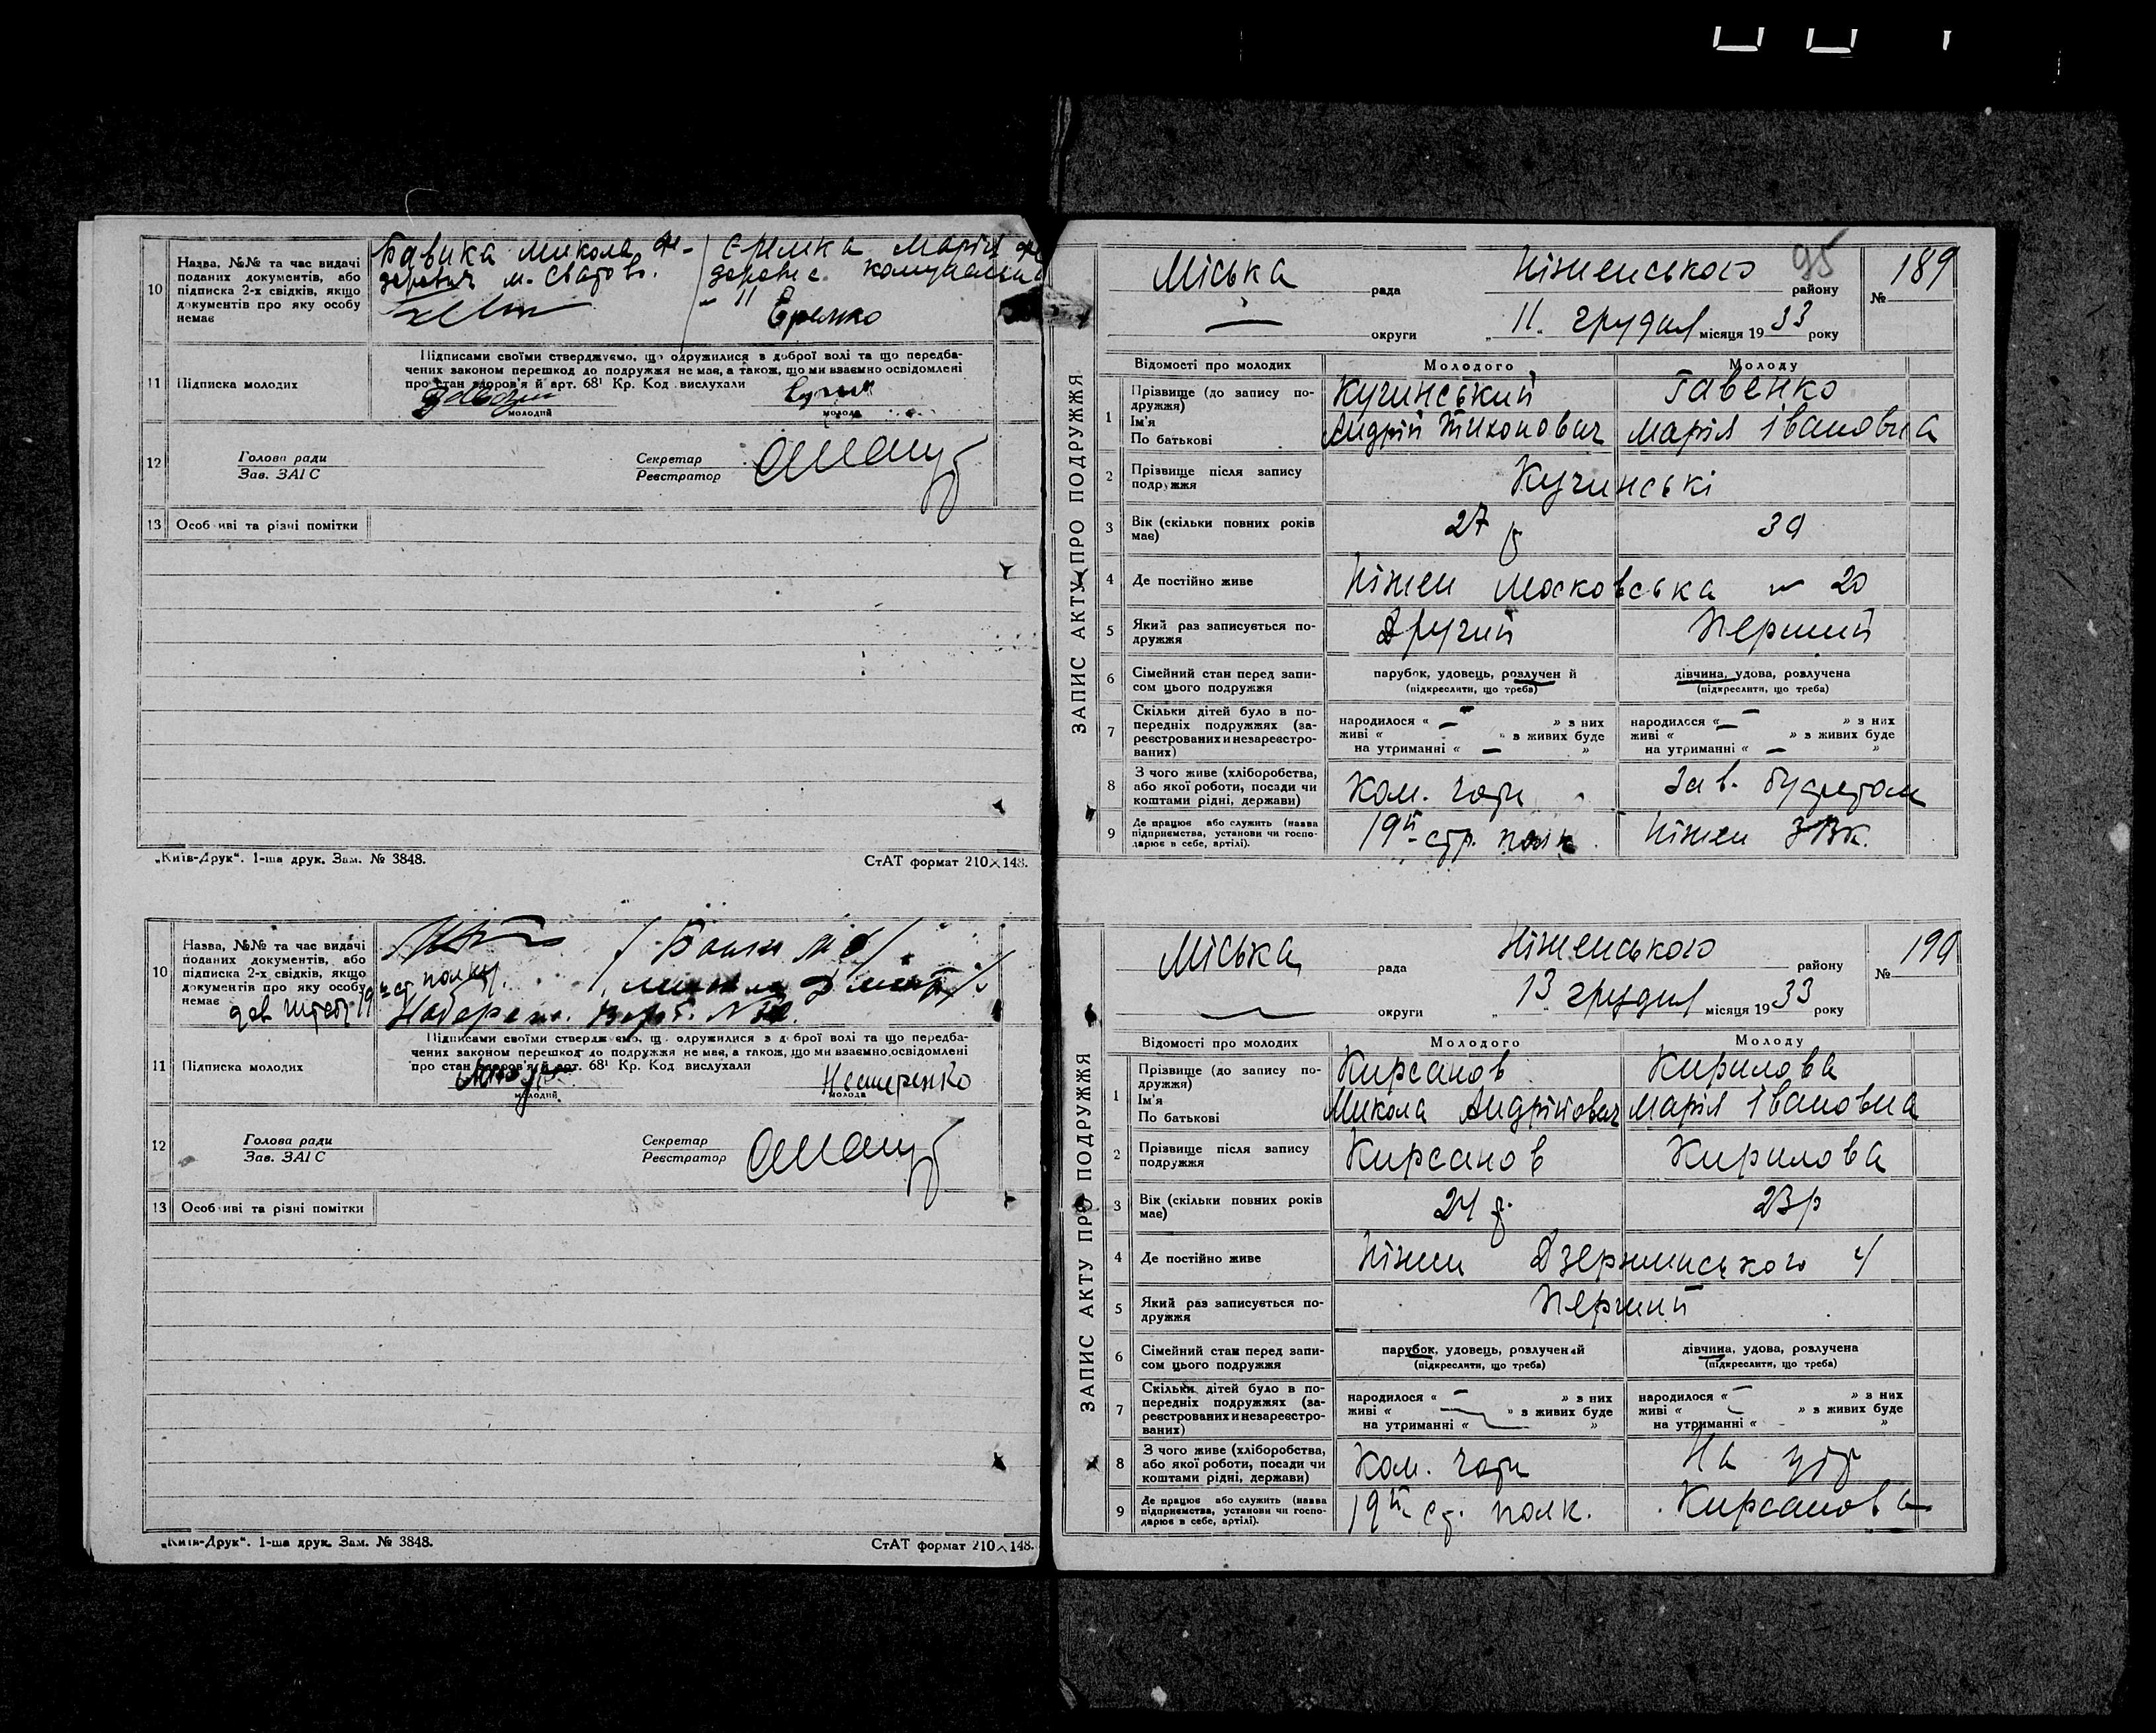 10
Назва, №№ та час видачі
поданих документів, або
підписка 2-х свідків, якщо
документів про яку особу
немає
Бавика Микола Фе-
дорович м. Сватово.
Єремка Марія
Еремко
11
Підписка молодих
Підписами своїми стверджуємо, що одружилися з доброї волі та що передба-
чених законом перешкод до подружжя не має, а також, що ми взаємно освідомлені
про стан здоров'я й арт. 68¹ Кр. Код вислухали
молодий
молода
12
Голова ради
Зав. ЗАГС
Секретар
Реєстратор
13
Особ иві та різні помітки
„Київ-Друк“. 1-ша друк. Зам. № 3848.
СтАТ формат 210×148.
10
Назва, №№ та час видачі
поданих документів, або
підписка 2-х свідків, якщо
документів про яку особу
немає
19й ст полку.
11
Підписка молодих
Підписами своїми стверджуємо, що одружилися з доброї волі та що передба-
чених законом перешкод до подружжя не має, а також, що ми взаємно освідомлені
про стан здоров'я й арт. 68¹ Кр. Код вислухали
Нестеренко
молодий
молода
12
Голова ради
Зав. ЗАГС
Секретар
Реєстратор
13
Особ иві та різні помітки
„Київ-Друк“. 1-ша друк. Зам. № 3848.
СтАТ формат 210×148.
ЗАПИС АКТУ ПРО ПОДРУЖЖЯ
95
Міська рада Ніженського району № 189
округи „11“ грудня місяця 1933 року
Відомості про молодих Молодого Молоду
1
Прізвище (до запису по-
дружжя)
Ім'я
По батькові
Кучинський Гавенко
Андрій Тихонович Марія Івановна
2
Прізвище після запису
подружжя
Кучинські
3
Вік (скільки повних років
має)
27 р 30
4
Де постійно живе
Ніжен Московська № 20
5
Який раз записується по-
дружжя
Другий Перший
6
Сімейний стан перед запи-
сом цього подружжя
парубок, удовець, розлучен й
(підкреслити, що треба)
дівчина, удова, розлучена
(підкреслити, що треба)
7
Скільки дітей було в по-
передніх подружжях (за-
реєстрованих и незареєстро-
ваних)
народилося « – » з них
живі « » в живих буде
на утриманні « – »
народилося « – » з них
живі « » в живих буде
на утриманні « – »
8
З чого живе (хліборобства,
або якої роботи, посади чи
коштами рідні, держави)
Ком. роти Зав. буфетом
9
Де працює або служить (назва
підприємства, установи чи госпо-
дарює в себе, артілі).
19й стр. полк. Ніжен ЗВК.
ЗАПИС АКТУ ПРО ПОДРУЖЖЯ
Міська рада Ніженського району № 190
округи „13“ грудня місяця 1933 року
Відомості про молодих Молодого Молоду
1
Прізвище (до запису по-
дружжя)
Ім'я
По батькові
Кирсанов Кирилова
Микола Андрійович Марія Івановна
2
Прізвище після запису
подружжя
Кирсанов Кирилова
3
Вік (скільки повних років
має)
24 р. 23 р
4
Де постійно живе
Ніжен Дзержинського 4
5
Який раз записується по-
дружжя
Перший
6
Сімейний стан перед запи-
сом цього подружжя
парубок, удовець, розлучений
(підкреслити, що треба)
дівчина, удова, розлучена
(підкреслити, що треба)
7
Скільки дітей було в по-
передніх подружжях (за-
реєстрованих и незареєстро-
ваних)
народилося « – » з них
живі « » в живих буде
на утриманні « »
народилося « – » з них
живі « – » в живих буде
на утриманні « – »
8
З чого живе (хліборобства,
або якої роботи, посади чи
коштами рідні, держави)
Ком. роти На утр
9
Де працює або служить (назва
підприємства, установи чи госпо-
дарює в себе, артілі).
19й ст. полк. Кирсанова